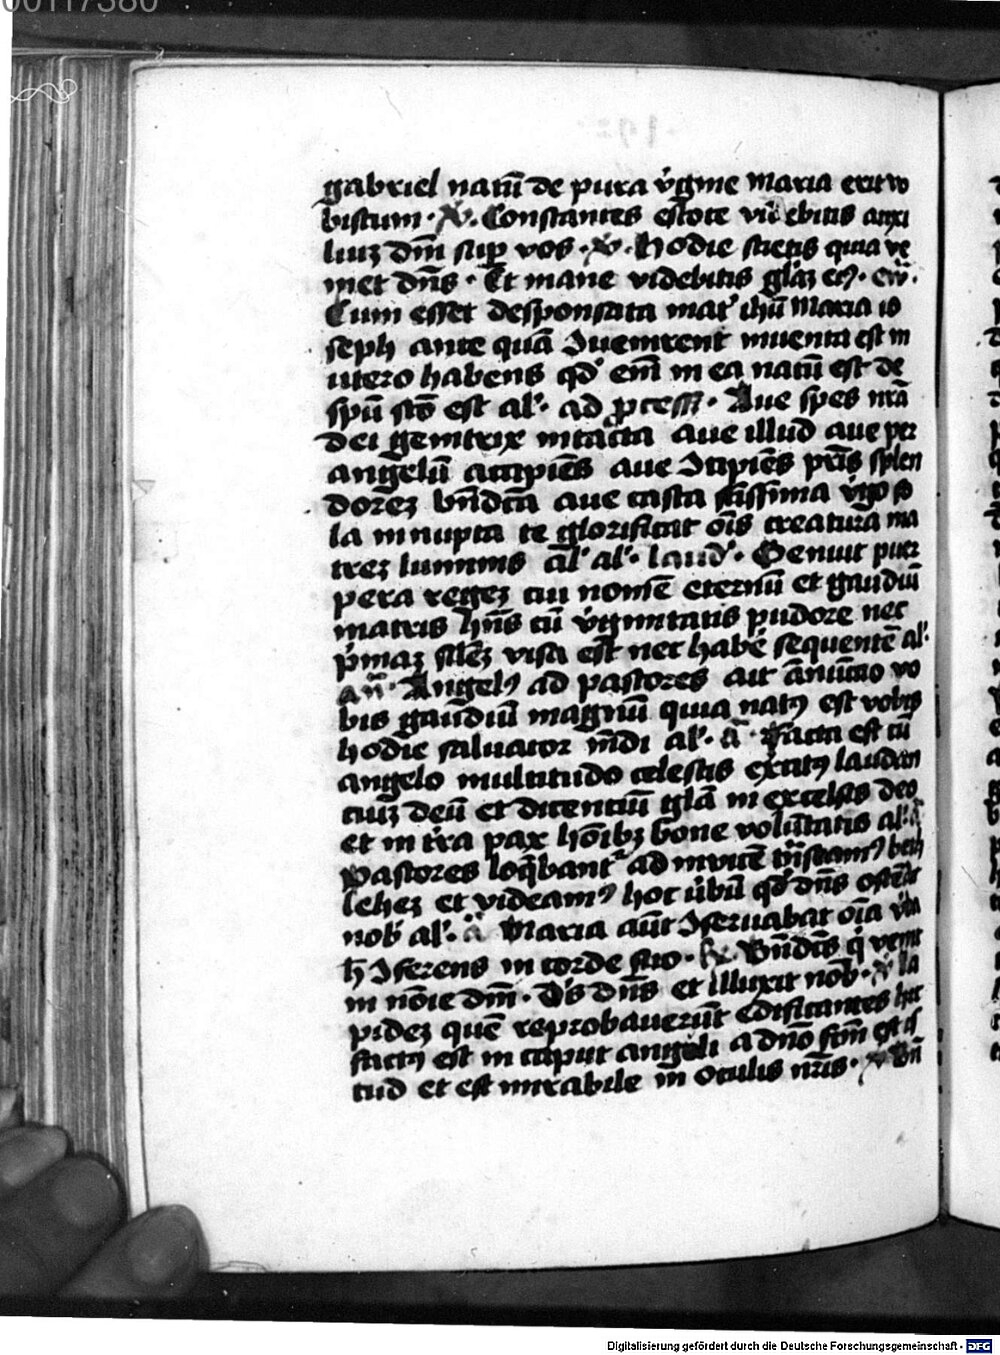 00117380
gabriel natū de pura v̓gine maria erit vo
biscum · ℣. Constantes estote videbitis auxi
liuꝫ dn̄i suꝑ vos · ℣. Hodie scietis quia ve
niet dn̄s · Et mane videbitis gl̄aꝫ eiꝰ · ew̄ ·
Cum esset desponsata mat̓ ih̄u maria io
seph ante quā ꝯuenirent inuenta est in
utero habens qd̓ em̄ in ea natū est de
spū sc̄o est al̓ · ad ꝓcess̓ · Aue spes nr̄a
dei genitrix intacta aue illud aue per
angelū accipiēs aue ꝯcipiēs pr̄is splen
doreꝫ bn̄dc̄a aue casta sc̄issima v̓go so
la innupta te glorificat oīs creatura ma
treꝫ luminis al̓ al̓ · laud̓ · Genuit puer
pera regeꝫ cui nomē eternū et gaudiū
matris hn̄s cū v̓ginitatis pudore nec
p̓maꝫ sil̄eꝫ visa est nec habē sequentē al̓ ·
an̄ · Angelꝰ ad pastores ait ānūtio vo
bis gaudiū magnū quia natꝰ est vobis
hodie saluator mūdi al̓ · ā · Facta est cū
angelo multitudo celestis exc̓itꝰ laudan
ciuꝫ deū et dicentiū gl̄a in excelsis deo
et in t̓ra pax hōibꝫ bone volūtatis al̓ · ā
Pastores loq̄bant̓ ad inuicē t̓nseamꝰ beth
leheꝫ et videamꝰ hoc v̓bū qd̓ dn̄s ostēdit
nob̓ al̓ · ā Maria aūt ꝯseruabat oīa v̓ba
h̄ ꝯferens in corde suo · ℟. Bn̄dc̄s q̓ venit
in nōie dn̄i · Ds̄ dn̄s et illuxit nob̓ · ℣ La
pideꝫ quē reprobauerūt edificantes hic
factꝰ est in caput anguli a dn̄o fc̄m est is
tud et est mirabile in oculis nr̄is · ℣ Bn̄
Digitalisierung gefördert durch die Deutsche Forschungsgemeinschaft - DFG